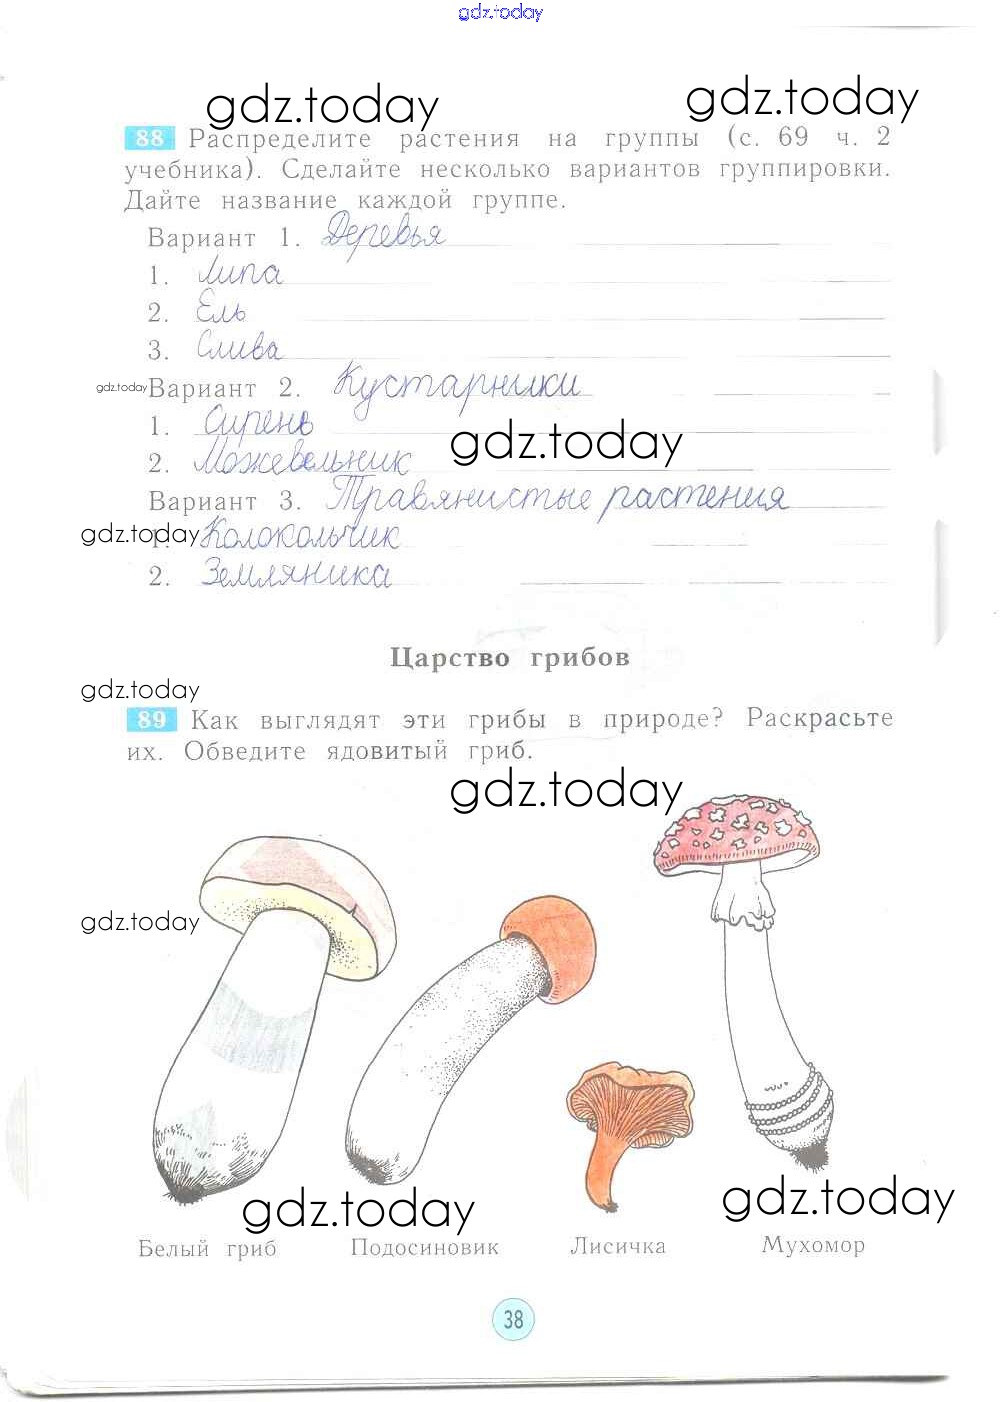 gdz.today
gdz.today gdz.today
88 Распределите растения на группы (с. 69 ч. 2
учебника). Сделайте несколько вариантов группировки.
Дайте название каждой группе.
Вариант 1. Деревья
1. Липа
2. Ель
3. Слива
gdz.today Вариант 2. Кустарники
1. Сирень
gdz.today
2. Можевельник
Вариант 3. Травянистые растения
gdz.today
1. Колокольчик
2. Земляника
Царство грибов
gdz.today
89 Как выглядят эти грибы в природе? Раскрасьте
их. Обведите ядовитый гриб.
gdz.today
gdz.today
gdz.today gdz.today
Белый гриб Подосиновик Лисичка Мухомор
38